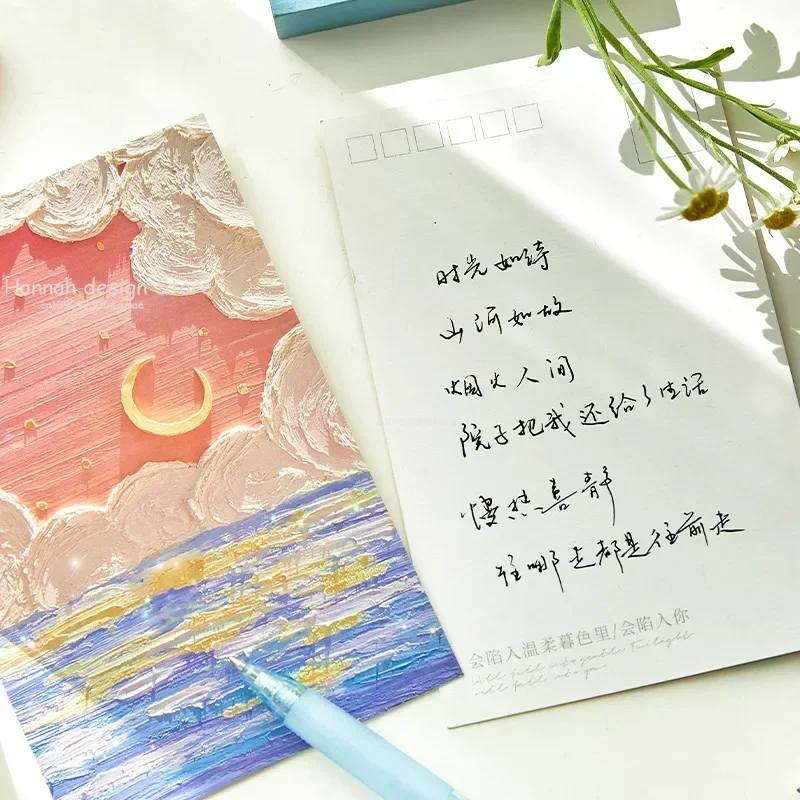 Hannah design
时光如诗
山河如故
烟火人间
院子把我还给了生活
慢热喜静
往哪走都是往前走
会陷入温柔暮色里/会陷入你
Will fall into gentle Twilight
will fall into you